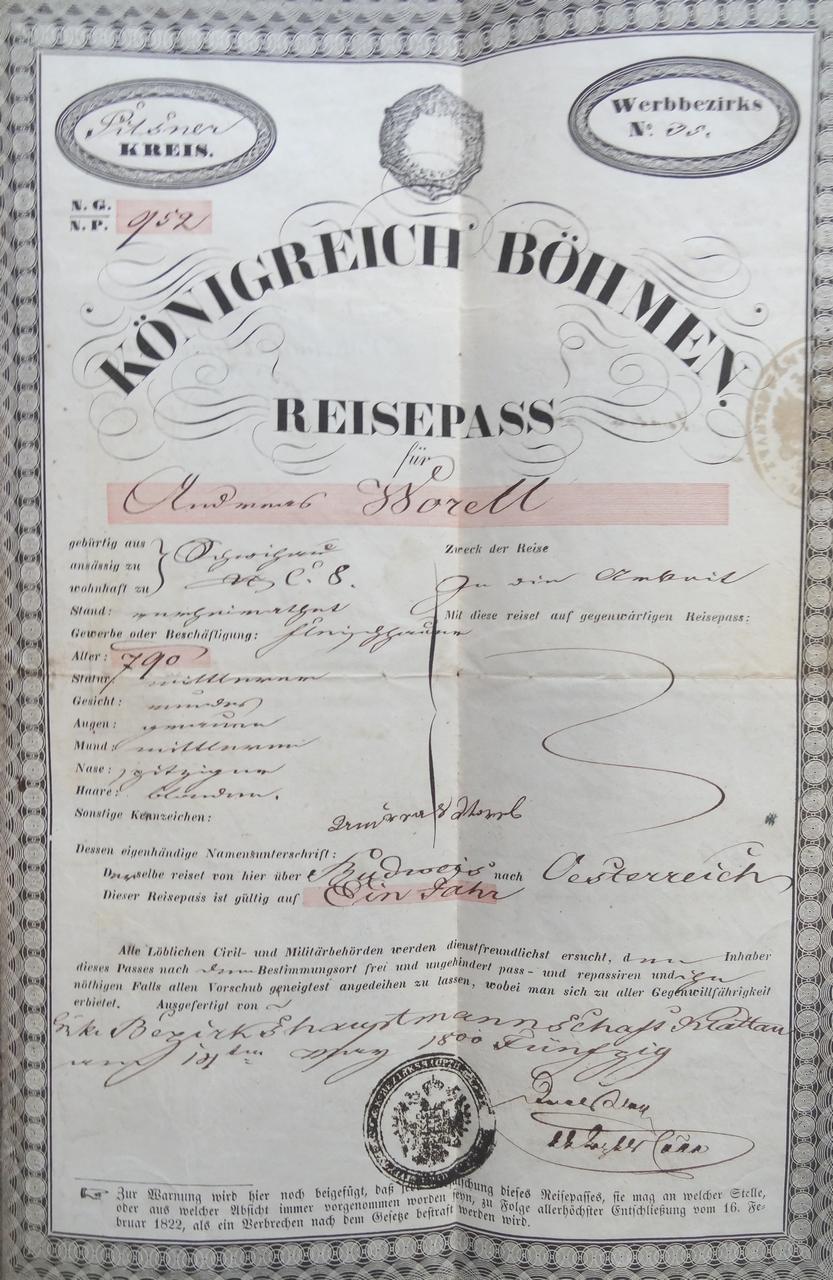 Pilsner
KREIS.
Werbbezirks
Nº. 35.
N. G.
N. P. 952
KÖNIGREICH BÖHMEN.
REISEPASS
für
Andreas Worell
gebürtig aus
ansässig zu
wohnhaft zu
Schwihau
N. C. 8.
Stand: verheirathet
Gewerbe oder Beschäftigung: Fleischhauer
Alter: 790
Statur: mittlerer
Gesicht: rundes
Augen: grauen
Mund: mittleren
Nase: spitziger
Haare: blonden.
Sonstige Kennzeichen:
Zweck der Reise
In die Arbeit
Mit diese reiset auf gegenwärtigen Reisepass:
Dessen eigenhändige Namensunterschrift:
Derselbe reiset von hier über Budweis nach Oesterreich
Dieser Reisepass ist gültig auf Ein Jahr
Alle Löblichen Civil- und Militärbehörden werden dienstfreundlichst ersucht, dem Inhaber
dieses Passes nach dem Bestimmungsort frei und ungehindert pass- und repassiren und ihn
nöthigen Falls allen Vorschub geneigtest angedeihen zu lassen, wobei man sich zu aller Gegenwillfährigkeit
erbietet. Ausgefertigt von
Bezirkshauptmannschaft Klattau
am 14ten May 1800 Fünfzig
☞ Zur Warnung wird hier noch beigefügt, daß jede Verfälschung dieses Reisepasses, sie mag an welcher Stelle,
oder aus welcher Absicht immer vorgenommen worden seyn, zu Folge allerhöchster Entschließung vom 16. Fe-
bruar 1822, als ein Verbrechen nach dem Gesetze bestraft werden wird.